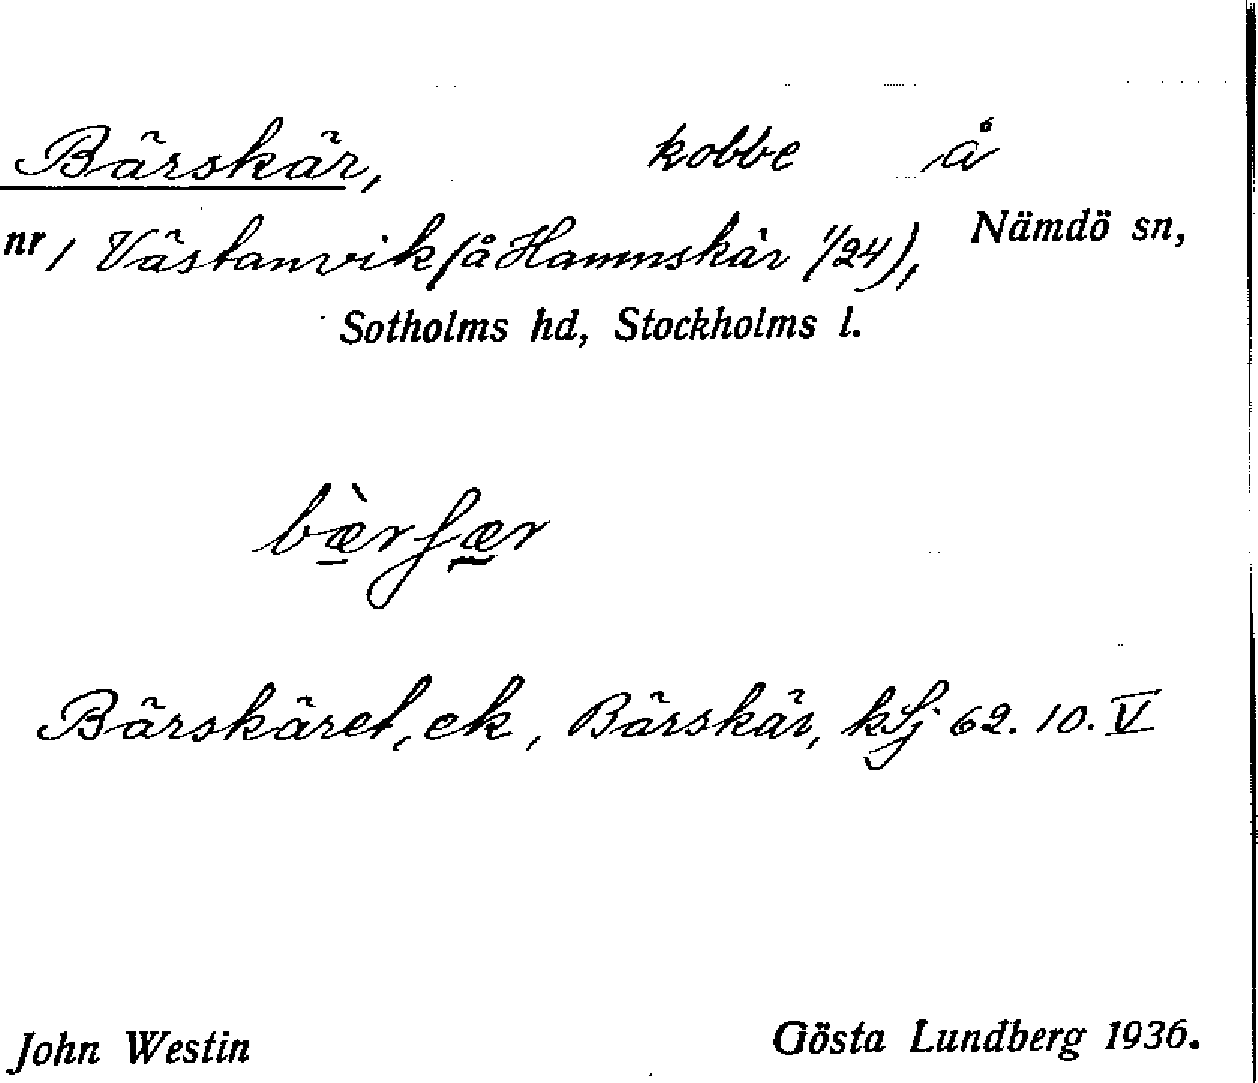 Bärskär, kobbe å
nr 1 Västanvik (å Hamnskär 1/24), Nämdö sn,
Sotholms hd, Stockholms l.
bæ̀rʃær
Bärskäret, ek, Bärskär, kSj 62. 10. V
John Westin Gösta Lundberg 1936.